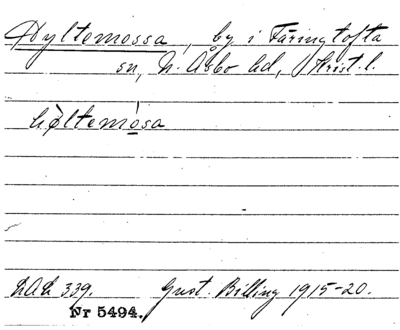 Hyltemossa, by i Färingtofta
sn, N. Åsbo hd, Krist. l.
høltemosa
LAL 339. Gust. Billing 1915-20.
Nr 5494.